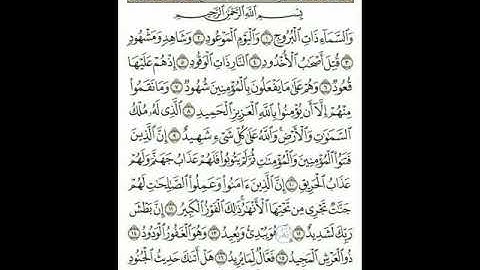 بِسْمِ اللَّهِ الرَّحْمَٰنِ الرَّحِيمِ
وَالسَّمَاءِ ذَاتِ الْبُرُوجِ ١ وَالْيَوْمِ الْمَوْعُودِ ٢ وَشَاهِدٍ وَمَشْهُودٍ
٣ قُتِلَ أَصْحَابُ الْأُخْدُودِ ٤ النَّارِ ذَاتِ الْوَقُودِ ٥ إِذْ هُمْ عَلَيْهَا
قُعُودٌ ٦ وَهُمْ عَلَىٰ مَا يَفْعَلُونَ بِالْمُؤْمِنِينَ شُهُودٌ ٧ وَمَا نَقَمُوا
مِنْهُمْ إِلَّا أَن يُؤْمِنُوا بِاللَّهِ الْعَزِيزِ الْحَمِيدِ ٨ الَّذِي لَهُ مُلْكُ
السَّمَاوَاتِ وَالْأَرْضِ وَاللَّهُ عَلَىٰ كُلِّ شَيْءٍ شَهِيدٌ ٩ إِنَّ الَّذِينَ
فَتَنُوا الْمُؤْمِنِينَ وَالْمُؤْمِنَاتِ ثُمَّ لَمْ يَتُوبُوا فَلَهُمْ عَذَابُ جَهَنَّمَ وَلَهُمْ
عَذَابُ الْحَرِيقِ ١٠ إِنَّ الَّذِينَ آمَنُوا وَعَمِلُوا الصَّالِحَاتِ لَهُمْ
جَنَّاتٌ تَجْرِي مِن تَحْتِهَا الْأَنْهَارُ ذَٰلِكَ الْفَوْزُ الْكَبِيرُ ١١ إِنَّ بَطْشَ
رَبِّكَ لَشَدِيدٌ ١٢ إِنَّهُ هُوَ يُبْدِئُ وَيُعِيدُ ١٣ وَهُوَ الْغَفُورُ الْوَدُودُ ١٤
ذُو الْعَرْشِ الْمَجِيدُ ١٥ فَعَّالٌ لِّمَا يُرِيدُ ١٦ هَلْ أَتَاكَ حَدِيثُ الْجُنُودِ